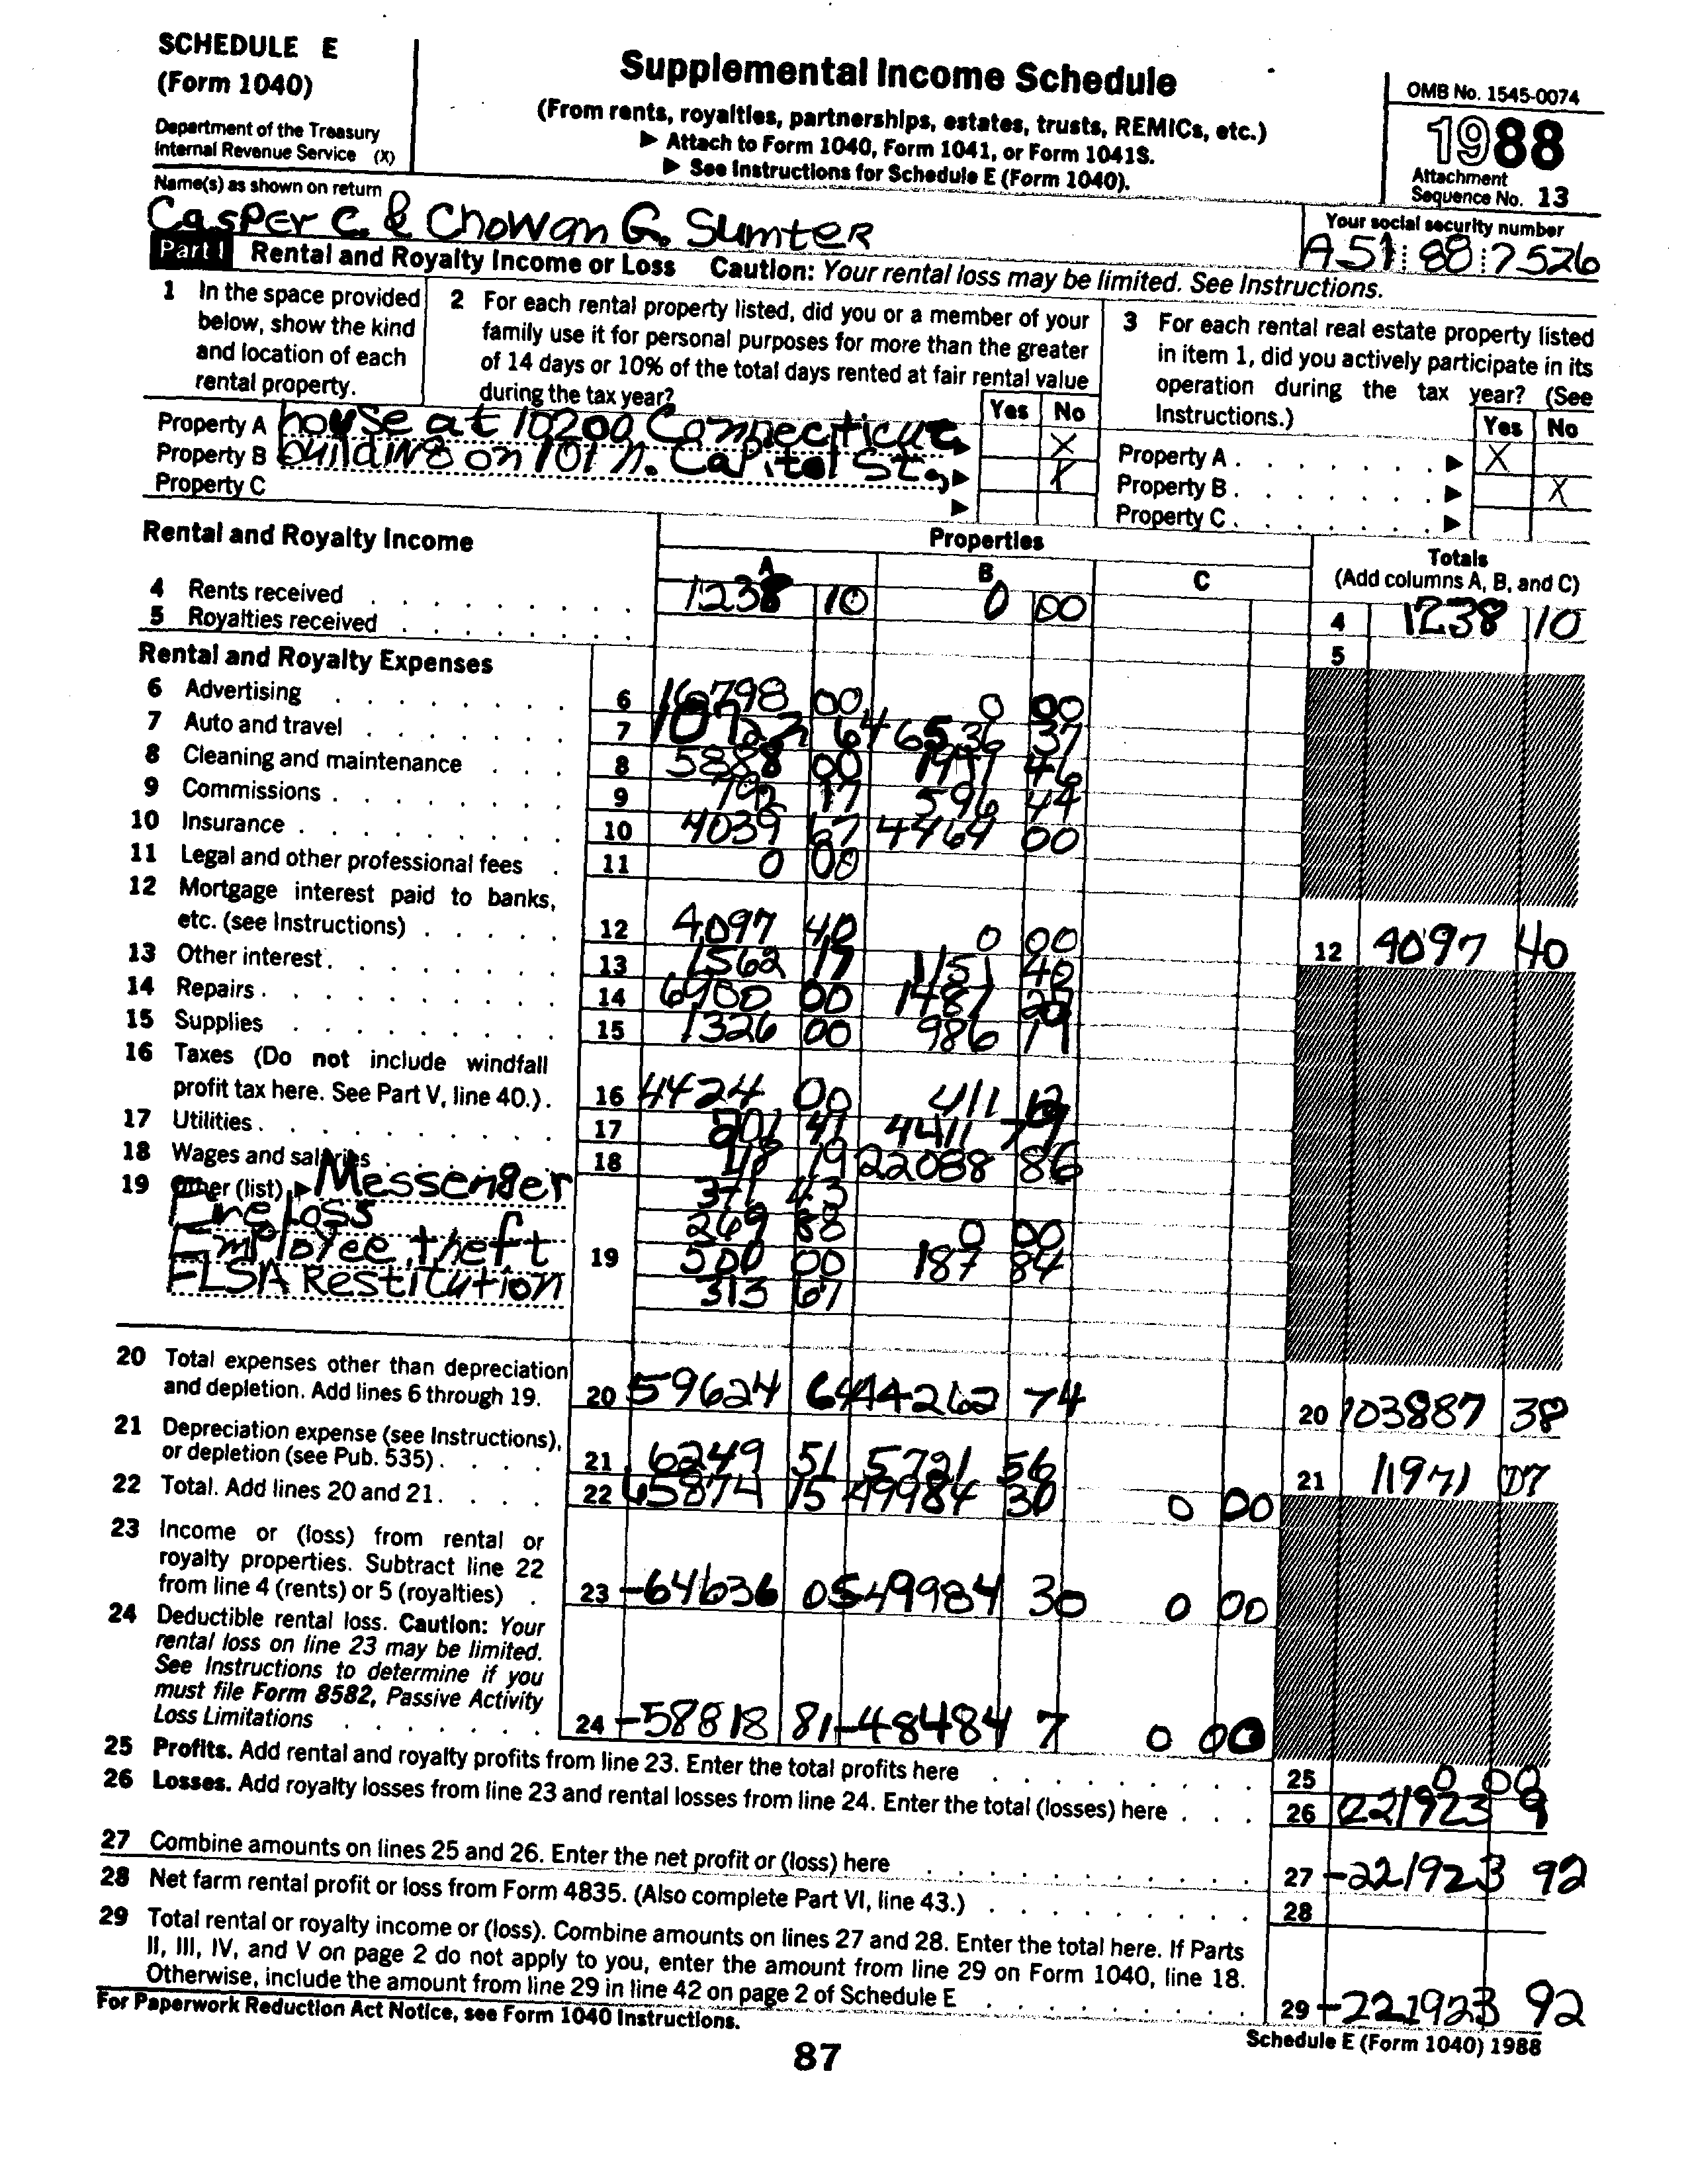 SCHEDULE E
(Form 1040)
Department of the Treasury
Internal Revenue Service (X)
Supplemental Income Schedule
(From rents, royalties, partnerships, estates, trusts, REMICs, etc.)
▶ Attach to Form 1040, Form 1041, or Form 1041S.
▶ See Instructions for Schedule E (Form 1040).
OMB No. 1545-0074
1988
Attachment
Sequence No. 13
Name(s) as shown on return
Casper C. & Chowan G. Sumter
Your social security number
A51 88 7526
Part I Rental and Royalty Income or Loss Caution: Your rental loss may be limited. See Instructions.
1 In the space provided
below, show the kind
and location of each
rental property.
2 For each rental property listed, did you or a member of your
family use it for personal purposes for more than the greater
of 14 days or 10% of the total days rented at fair rental value
during the tax year?
3 For each rental real estate property listed
in item 1, did you actively participate in its
operation during the tax year? (See
Instructions.)
Yes No
Yes No
Property A house at 10200 Connecticut ▶ X
Property B building on 101 N. Capitol St., ▶ X
Property C ▶
Property A ▶ X
Property B ▶ X
Property C ▶
Rental and Royalty Income
Properties
A B C
Totals
(Add columns A, B, and C)
4 Rents received 1238 10 0 00 4 1238 10
5 Royalties received 5
Rental and Royalty Expenses
6 Advertising 6 16798 00 0 00
7 Auto and travel 7 64 6536 37
8 Cleaning and maintenance 8 5888 00 46
9 Commissions 9 792 17 596 44
10 Insurance 10 4039 67 4464 00
11 Legal and other professional fees 11 0 00
12 Mortgage interest paid to banks,
etc. (see Instructions) 12 4097 40 0 00 12 4097 40
13 Other interest 13 1562 1151
14 Repairs 14 00 1487
15 Supplies 15 1326 00 986 19
16 Taxes (Do not include windfall
profit tax here. See Part V, line 40.) 16 4424 00 411
17 Utilities 17 4411
18 Wages and salaries 18 22088 86
19 Other (list) ▶ Messenger 43
Fire loss 269 88 0 00
Employee theft 19 500 00 187 84
FLSA Restitution 313 67
20 Total expenses other than depreciation
and depletion. Add lines 6 through 19. 20 59624 64 44262 74 20 103887 38
21 Depreciation expense (see Instructions),
or depletion (see Pub. 535) 21 6249 51 5721 56 21 11971 07
22 Total. Add lines 20 and 21. 22 65874 15 49984 30 0 00
23 Income or (loss) from rental or
royalty properties. Subtract line 22
from line 4 (rents) or 5 (royalties) 23 -64636 05 -49984 30 0 00
24 Deductible rental loss. Caution: Your
rental loss on line 23 may be limited.
See Instructions to determine if you
must file Form 8582, Passive Activity
Loss Limitations 24 -58818 81 -48484 7 0 00
25 Profits. Add rental and royalty profits from line 23. Enter the total profits here 25 0 00
26 Losses. Add royalty losses from line 23 and rental losses from line 24. Enter the total (losses) here 26 221923 9
27 Combine amounts on lines 25 and 26. Enter the net profit or (loss) here 27 -221923 92
28 Net farm rental profit or loss from Form 4835. (Also complete Part VI, line 43.) 28
29 Total rental or royalty income or (loss). Combine amounts on lines 27 and 28. Enter the total here. If Parts
II, III, IV, and V on page 2 do not apply to you, enter the amount from line 29 on Form 1040, line 18.
Otherwise, include the amount from line 29 in line 42 on page 2 of Schedule E 29 -221923 92
For Paperwork Reduction Act Notice, see Form 1040 Instructions.
Schedule E (Form 1040) 1988
87